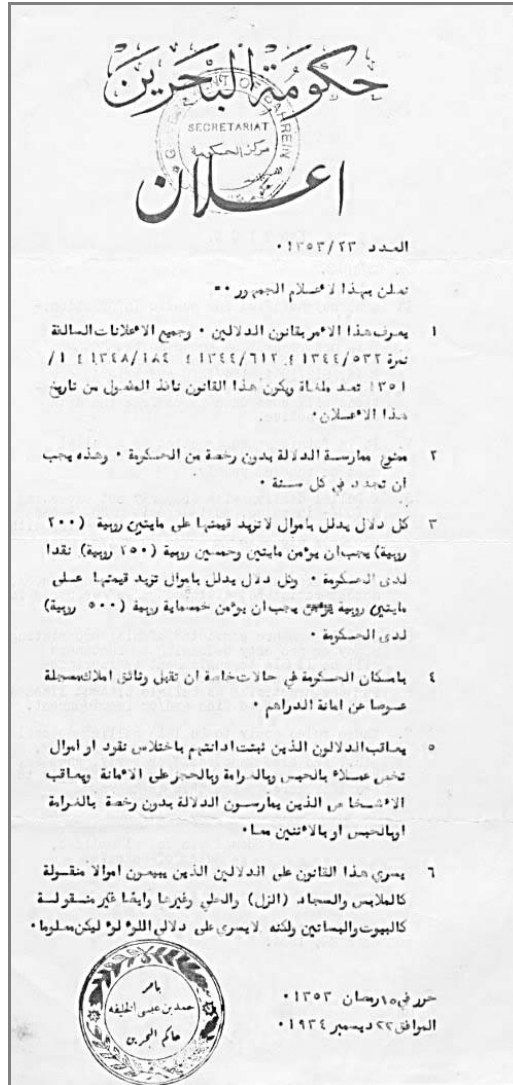 حكومة البحرين
GOVERNMENT OF BAHREIN
SECRETARIAT
مركز الحكومة
اعلان
العدد ١٣٥٣/٢٣٠
نعلن بهذا لاعلام الجمهور ٠٠
١ يعرف هذا الامر بقانون الدلالين ٠ وجميع الاعلانات السالفة
نمرة ١٣٤٤/٥٣٢ ؛ ١٣٤٤/٦١٢ ؛ ١٣٤٨/١٨٤ ؛ ١/
١٣٥١ تعد ملغاة ويكون هذا القانون نافذ المفعول من تاريخ
هذا الاعلان٠
٢ ممنوع ممارسة الدلالة بدون رخصة من الحكومة ٠ وهذه يجب
ان تجدد في كل سنة ٠
٣ كل دلال يدلل باموال لاتزيد قيمتها على مايتين روبية (٢٠٠
روبية) يجب ان يؤمن مايتين وخمسين روبية (٢٥٠ روبية) نقدا
لدى الحكومة ٠ وكل دلال يدلل باموال تزيد قيمتها على
مايتين روبية يجب ان يؤمن خمسماية روبية (٥٠٠ روبية)
لدى الحكومة ٠
٤ بامكان الحكومة في حالات خاصة ان تقبل وثائق املاك مسجلة
عوضا عن امانة الدراهم ٠
٥ يعاقب الدلالون الذين تثبت ادانتهم باختلاس نقود او اموال
تخص عملاء بالحبس وبالغرامة وبالحجز على الامانة ويعاقب
الاشخاص الذين يمارسون الدلالة بدون رخصة بالغرامة
اوبالحبس او بالاثنين معا٠
٦ يسري هذا القانون على الدلالين الذين يبيعون اموالا منقولة
كالملابس والسجاد (الزل) والحلي وغيرها وايضا غير منقولة
كالبيوت والبساتين ولكنه لايسرى على دلالي اللؤلؤ ليكن معلوما٠
بامر
حمد بن عيسى الخليفه
حاكم البحرين
حرر في ١٥ رمضان ١٣٥٣٠
الموافق ٢٢ ديسمبر ١٩٣٤٠